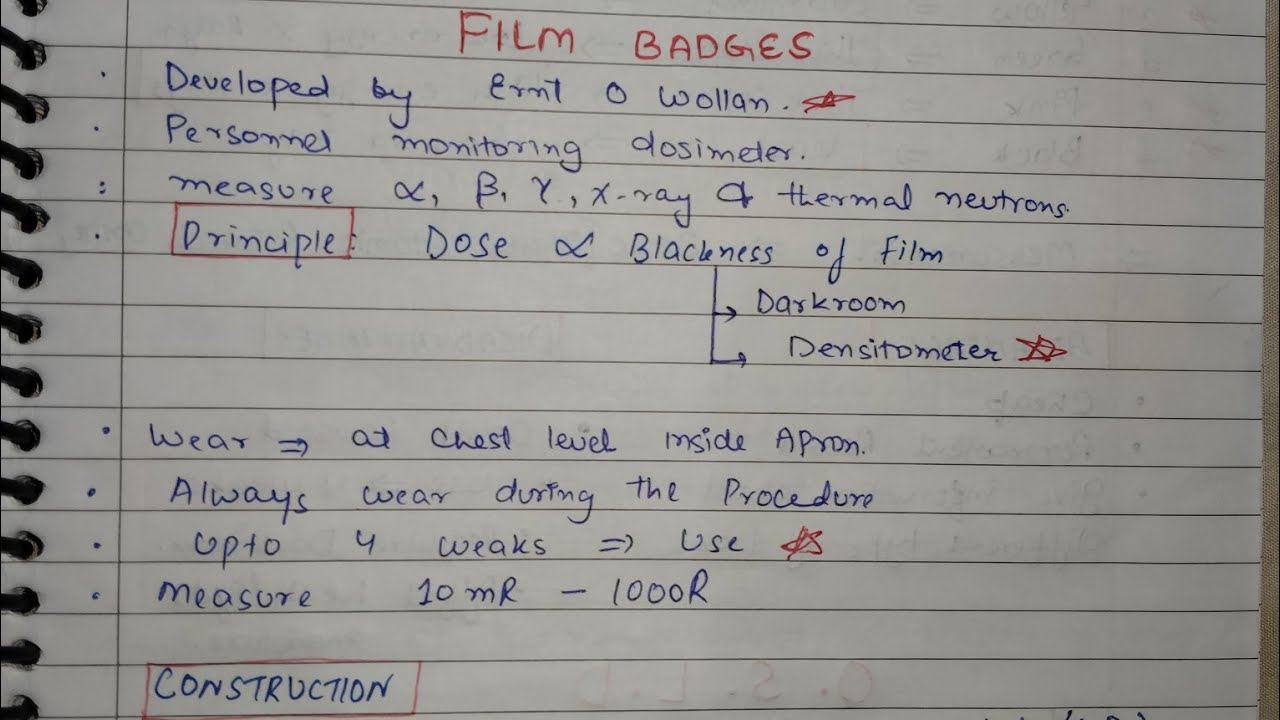 FILM BADGES
· Developed by Ernt O Wollan.
· Personnel monitoring dosimeter.
: measure α, β, γ, X-ray & thermal neutrons.
· Principle: Dose ∝ Blackness of Film
→ Darkroom
→ Densitometer
· Wear ⇒ at Chest level inside Apron.
· Always wear during the Procedure
· Upto 4 weaks ⇒ Use
· Measure 10mR – 1000R
CONSTRUCTION